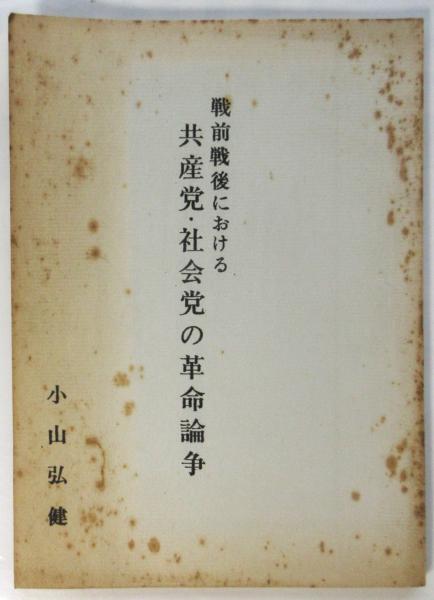 戦前戦後における
共産党・社会党の革命論争
小山弘健